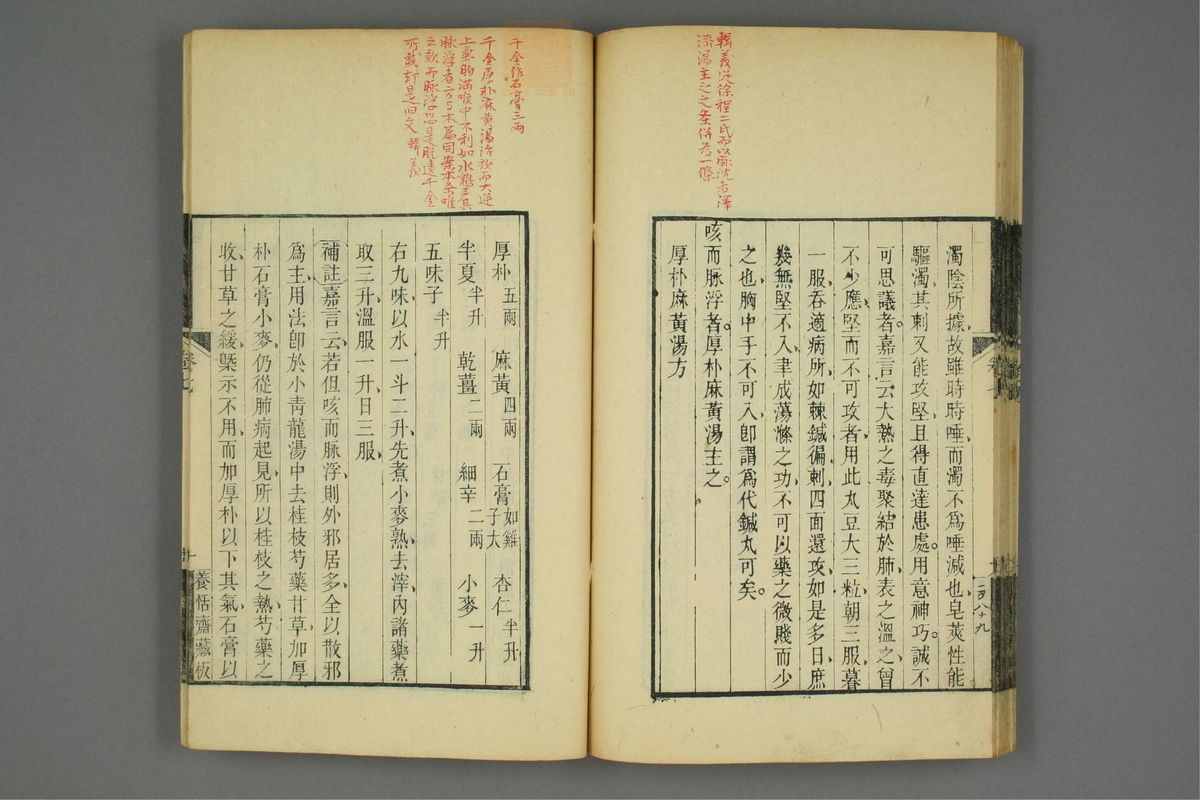 輯義從徐程二氏而以脈沈者澤
漆湯主之之條併爲一條
濁陰所據故雖時時唾而濁不爲唾減也皂莢性能
驅濁其刺又能攻堅且得直達患處用意神巧誠不
可思議者嘉言云大熱之毒聚結於肺表之溫之曾
不少應堅而不可攻者用此丸豆大三粒朝三服暮
一服吞適病所如棘鍼徧刺四面還攻如是多日庶
幾無堅不入聿成蕩滌之功不可以藥之微賤而少
之也胸中手不可入卽謂爲代鍼丸可矣
咳而脈浮者厚朴麻黃湯主之
厚朴麻黃湯方
卷七
千金作石膏三兩
千金厚朴麻黃湯治欬而大逆
上氣胸滿喉中不利如水雞聲其
脈浮者方与本篇同案本条唯
云欬而脈浮恐是脫遺千金
所載却是旧文 輯義
厚朴五兩 麻黃四兩 石膏如雞子大 杏仁半升
半夏半升 乾薑二兩 細辛二兩 小麥一升
五味子半升
右九味以水一斗二升先煮小麥熟去滓內諸藥煮
取三升溫服一升日三服
補註嘉言云若但咳而脈浮則外邪居多全以散邪
爲主用法卽於小靑龍湯中去桂枝芍藥甘草加厚
朴石膏小麥仍從肺病起見所以桂枝之熱芍藥之
收甘草之緩槩示不用而加厚朴以下其氣石膏以
卷七
十
養恬齋藏板